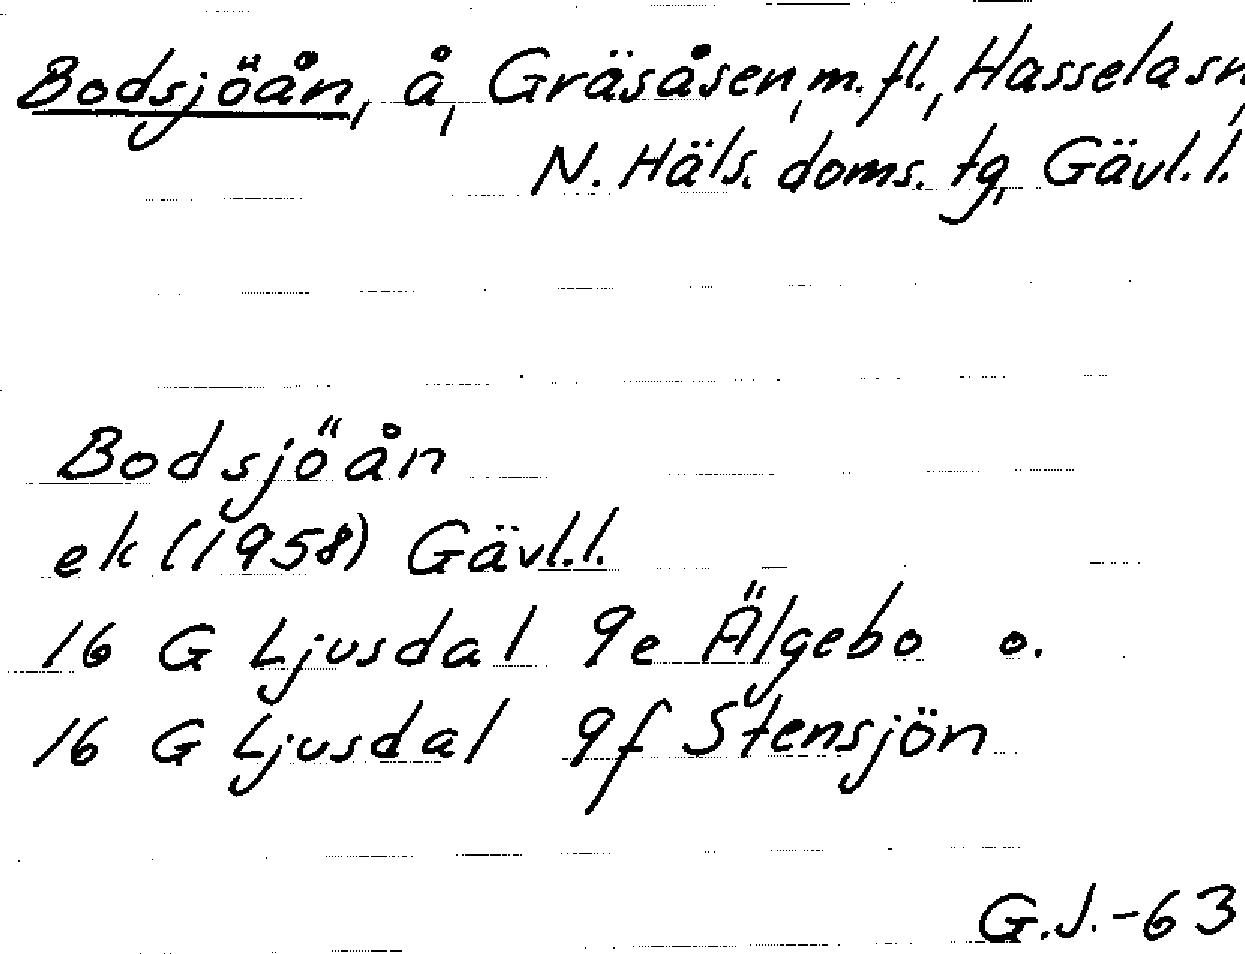 Bodsjöån, å, Gräsåsen, m. fl., Hassela sn,
N. Häls. doms. tg, Gävl. l.
Bodsjöån
ek (1958) Gävl. l.
16 G Ljusdal 9e Älgebo o.
16 G Ljusdal 9f Stensjön
G.J.-63